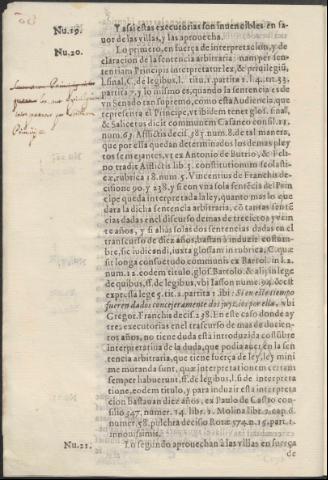 Nu.19. Y assi estas executorias son inuencibles en fa
uor de las villas, y las aprouecha.
Nu.20. Lo primero, en fuerça de interpretacion, y de
claracion de la sentencia arbitraria: nam per sen
tentiam Principis interpretatur lex, & priuilegiũ,
l. final. C. de legibus, l. titu. 1. partita 1. l. 4. tit. 33.
partita 7. y lo mismo es, quando la sentencia es de
vn Senado tan supremo, como esta Audiencia, que
representa el Principe, vt ibidem tenet glos. final,
& Salicetus dicit communem Casaneo consil. 13.
num. 63. Afflictis decif. 383. num. 8. de tal manera,
que por ella quedan determinados los demas pley
tos semejantes, vt ex Antonio de Butrio, & Feli
no tradit Afflictis lib. 3. constitutionum
ex, rubrica 18. num. 5. Vincentius de Franchis de
cisione 90. y 238. y si con vna sola sentẽcia del Prin
cipe queda interpretada la ley, quanto mas lo que
dara la dicha sentencia arbitraria, cõ tantas sentẽ
cias dadas en el discurso de mas de trecietos y vein
te años, y si a lias solas dos sentencias dadas en el
transcurso de diez años, bastan a induzir costum
bre, sic iudicandi, iuxta glossam in rubrica, C. quæ
sit longa consuetudo communis ex Bartol. in l. 2.
num. 12. eodem titulo, glos. Bartolo. & alijs in lege
de quibus, ff. de legibus, vbi Iasson nume. 39. & est
expressa lege 5. tit. 2. partita 1. ibi: Si en este tiempo
fueren dados concejeramente dos juyzios por ella, vbi
Gregor. Franchis decis. 238. En este caso donde ay
tres executorias en el trascurso de mas de docien-
tos años, no tiene duda està introduzida costũbre
interpretatiua de la duda, que podia auer en la sen
tencia arbitraria, que tiene fuerça de ley, ley mini
me mutanda sunt, quæ interpretationem certam
semper habuerunt, ff. de legibus, l. si de interpreta
tione, eodem titulo, y para induzir esta interpreta
cion bastauan diez años, ex Paulo de Castro con
silio 347. numer. 14. libr. 2. Molina libr. 2. cap. 6.
numer. 58. pulchra decisio Rotæ 574. n. 15. part. 1.
in nouissimis.
Nu.21. Lo segundo aprouechan a las villas en fuerça
de